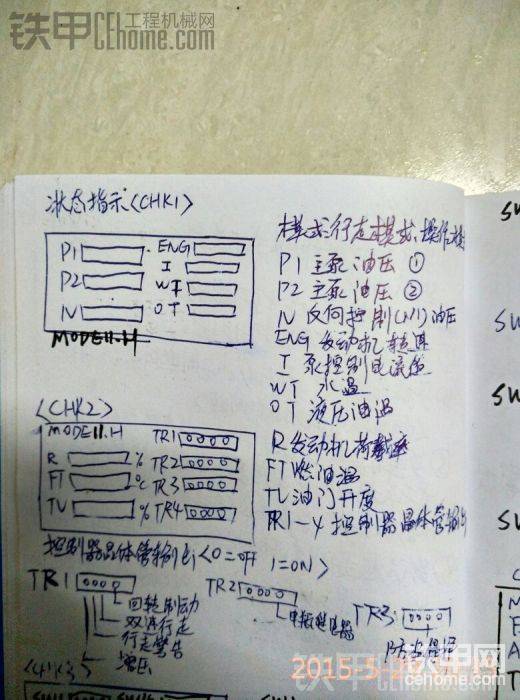 铁甲工程机械网
CEhome.com
状态指示<CHK1>
P1 ENG
P2 I
WT
N OT
MODE11.H
模式:行走模式、操作
P1 主泵油压①
P2 主泵油压②
N 反向控制(N1)油压
ENG 发动机转速
I 泵控制电流值
WT 水温
OT 液压油温
R 发动机荷载率
FT 燃油温
TV 油门开度
TR1-4 控制器晶体管输出
<CHK2>
MODE11.H TR1 0000
R % TR2 0000
FT ℃ TR3 0000
TV % TR4 0000
控制器晶体管输出<0=OFF 1=ON>
TR1 0000
回转制动
双速行走
行走警告
增压
TR2
继电器
TR3
<CHK3>
2015-5-2
铁甲
cehome.com